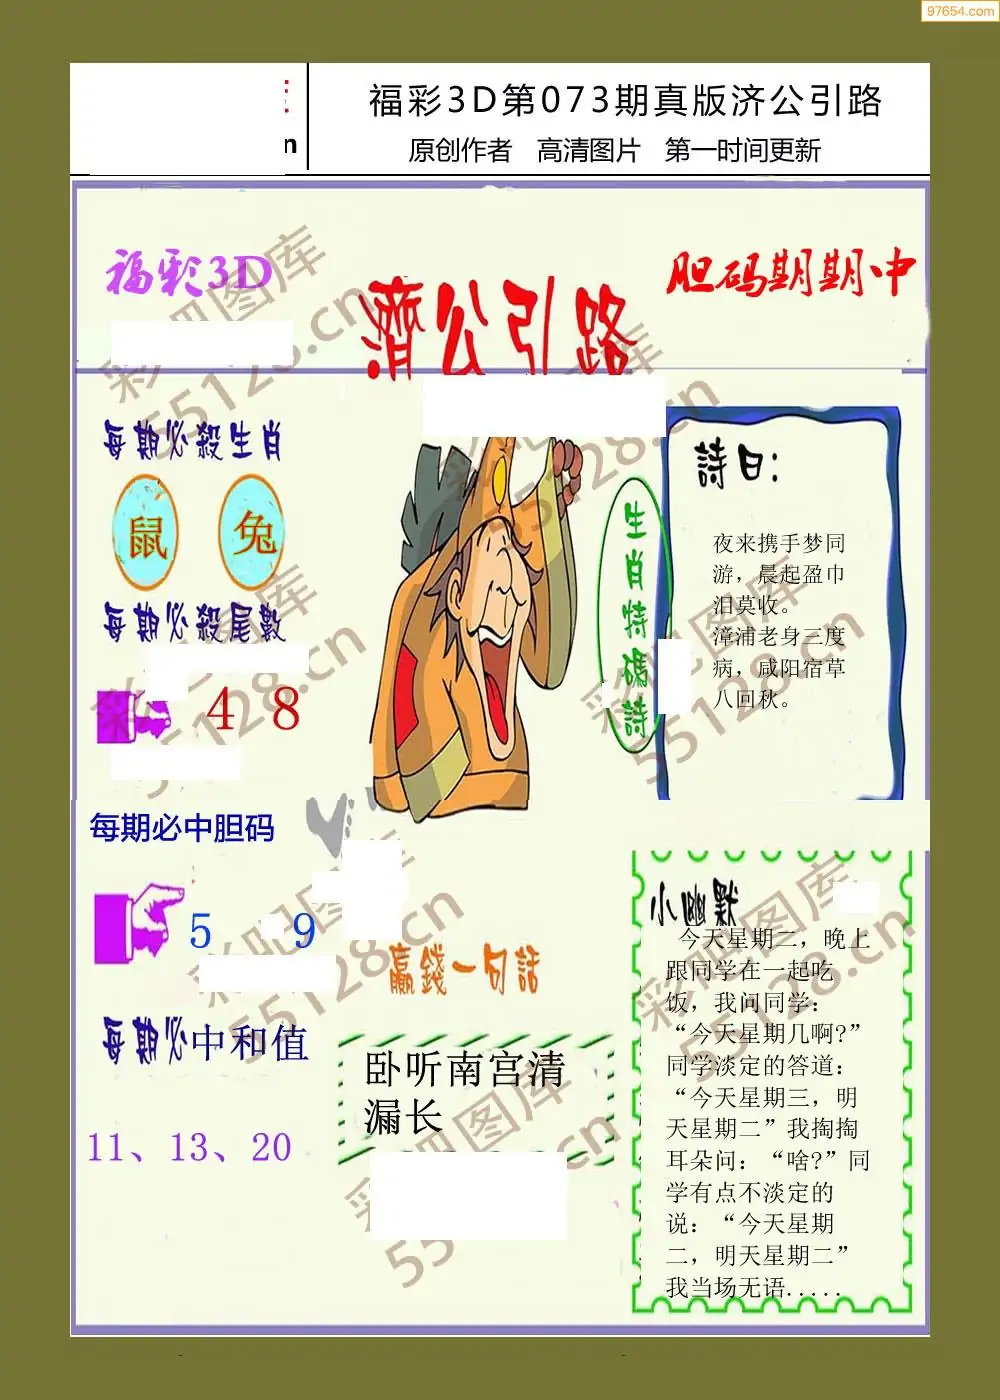 97654.com
n
福彩3D第073期真版济公引路
原创作者 高清图片 第一时间更新
福彩3D
濟公引路
胆码期期中
每期必殺生肖
鼠 兔
每期必殺尾數
4 8
每期必中胆码
5 9
每期必中和值
11、13、20
生肖特碼詩
詩曰:
夜来携手梦同
游，晨起盈巾
泪莫收。
漳浦老身三度
病，咸阳宿草
八回秋。
贏錢一句話
卧听南宫清
漏长
小幽默
今天星期二，晚上
跟同学在一起吃
饭，我问同学：
“今天星期几啊?”
同学淡定的答道：
“今天星期三，明
天星期二”我掏掏
耳朵问：“啥?”同
学有点不淡定的
说：“今天星期
二，明天星期二”
我当场无语.....
彩吧图库
55128.cn
彩吧图库
55128.cn
彩吧图库
55128.cn
彩吧图库
55128.cn
彩吧图库
55128.cn
彩吧图库
55128.cn
彩吧图库
55128.cn